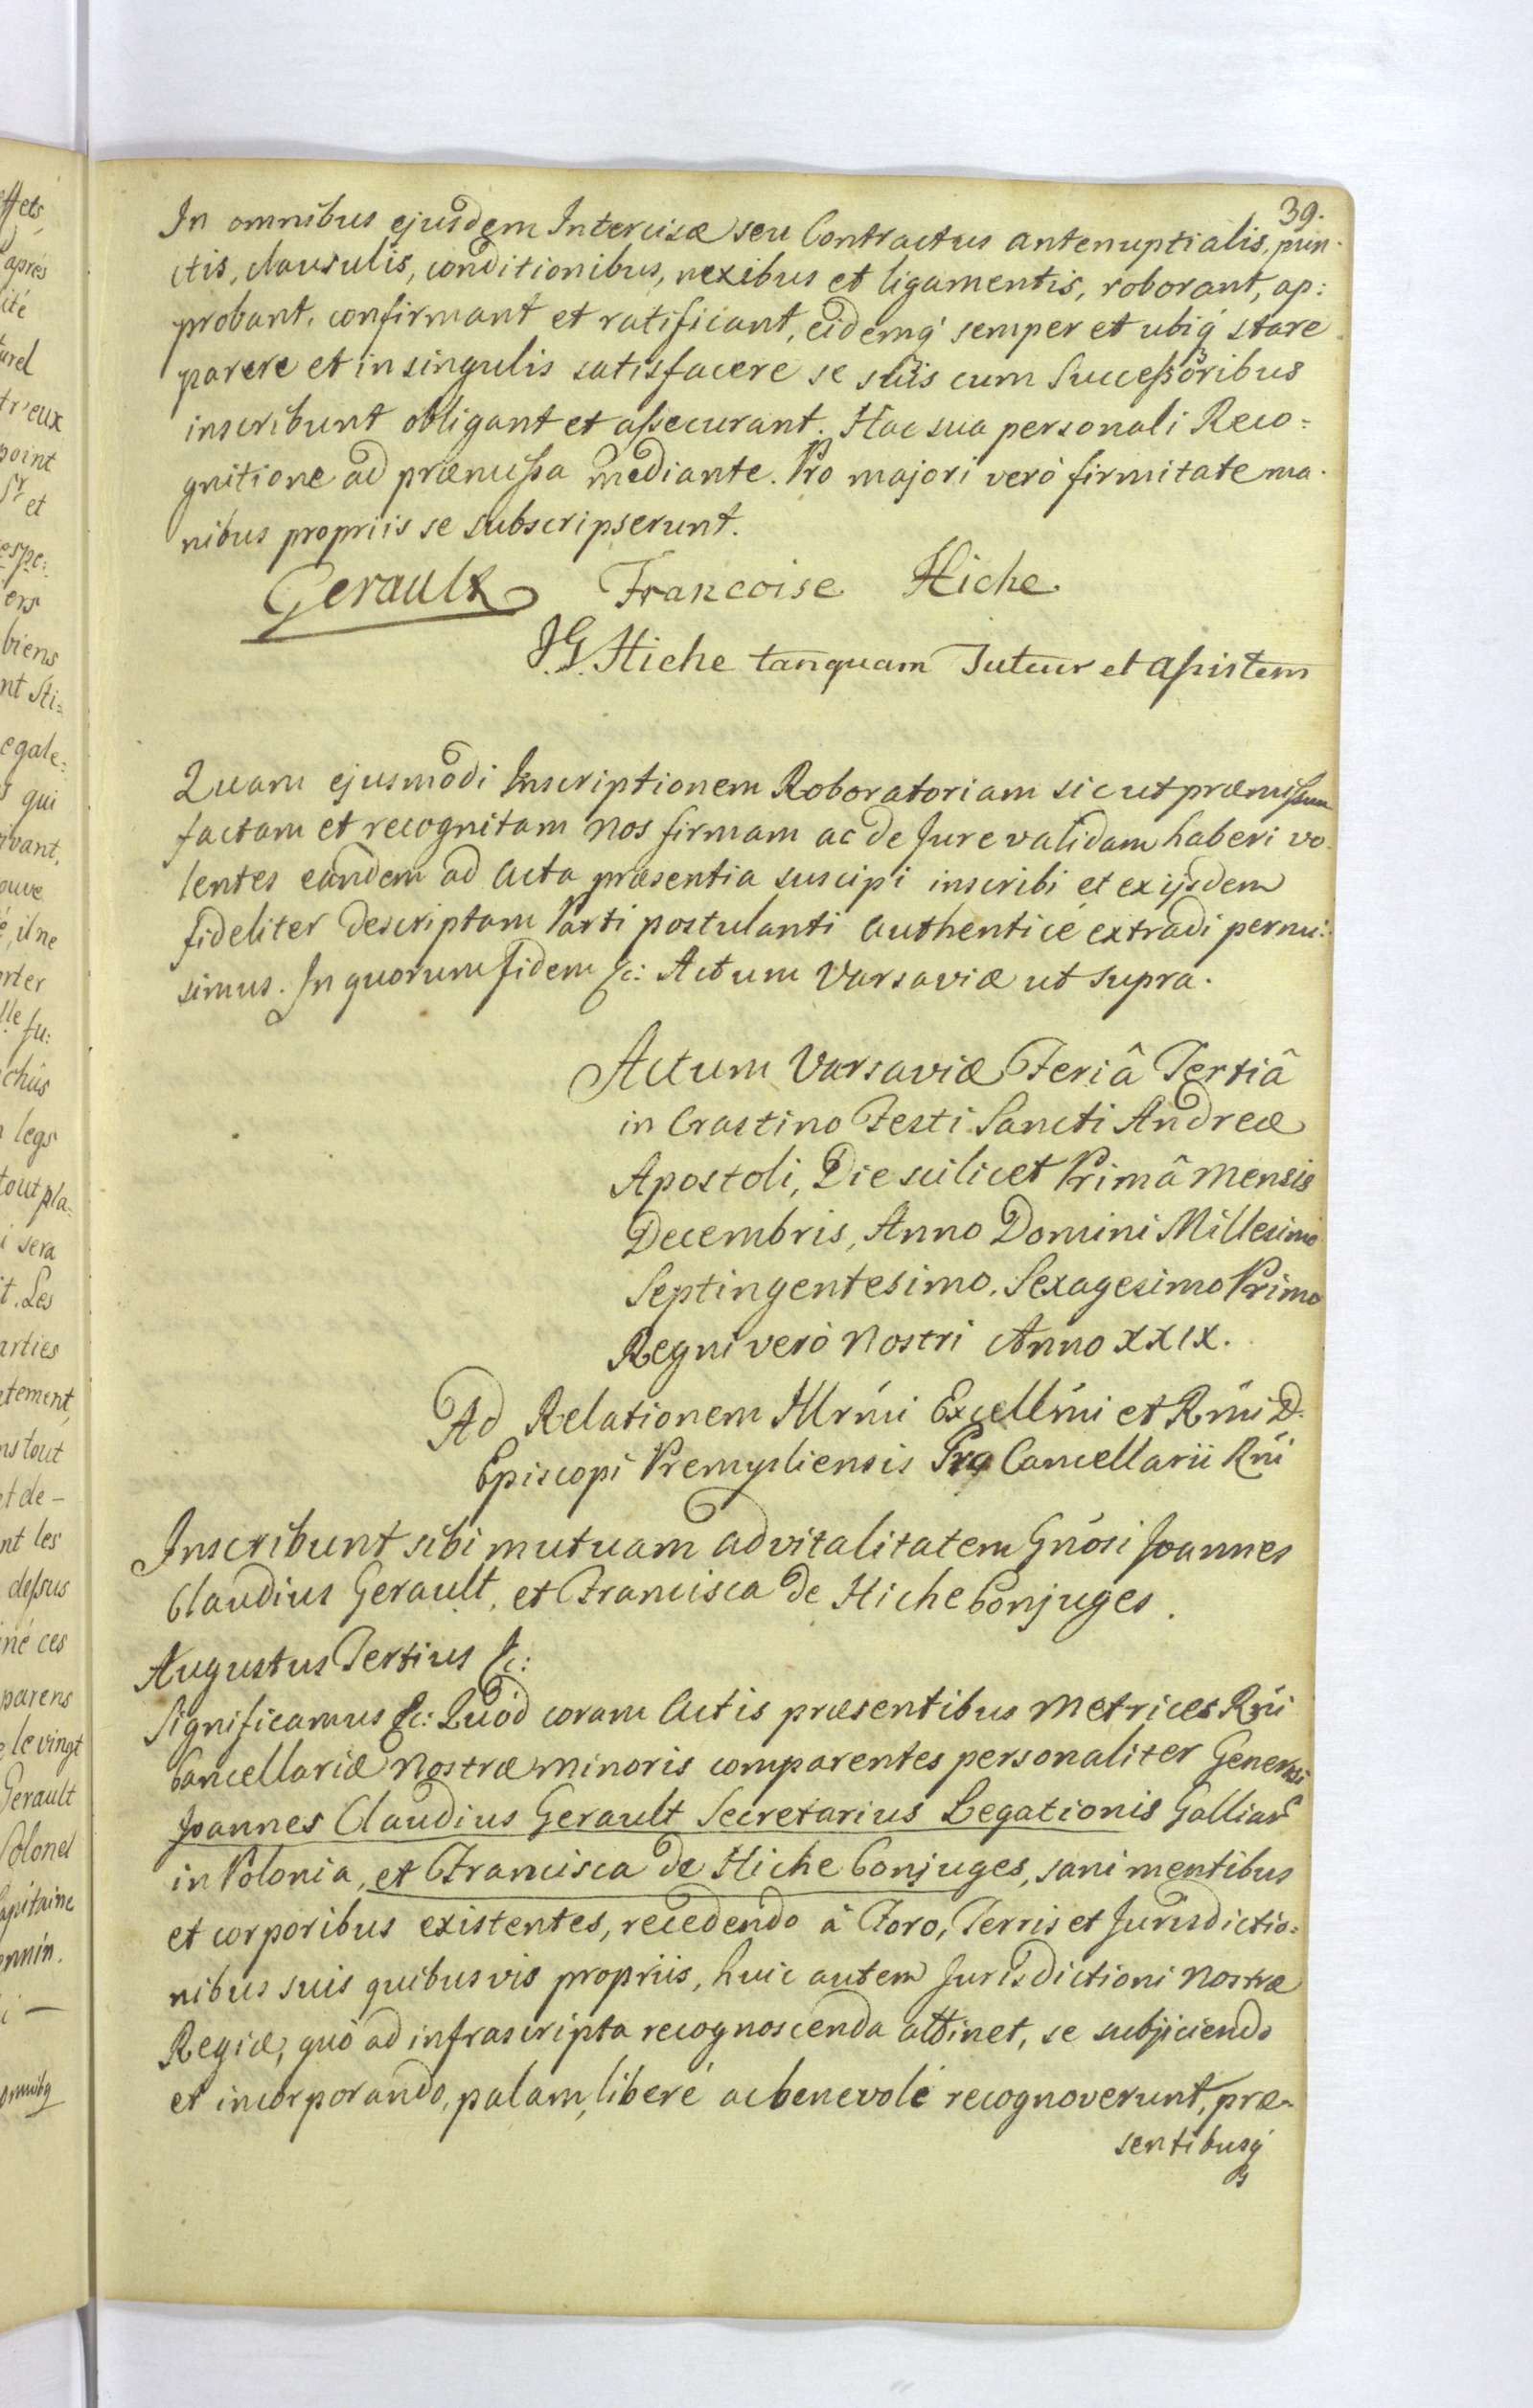 39.
In omnibus ejusdem Intercisæ seu Contractus antenuptialis, pun-
ctis, clausulis, conditionibus, nexibus et ligamentis, roborant, ap:
probant, confirmant et ratificant, eidemq́ semper et ubiq́ stare
parere et in singulis satisfacere se suis cum Successoribus
inscribunt obligant et assecurant. Hac sua personali Reco=
gnitione ad præmissa mediante. Pro majori verò firmitate ma-
nibus propriis se subscripserunt.
Gerault Francoise Hiche
J.G. Hiche tanquam Tuteur et assistem
Quam ejusmodi Inscriptionem Roboratoriam sicut præmissum
factam et recognitam Nos firmam ac de Jure validam haberi vo-
lentes eandem ad Acta præsentia suscipi inscribi et ex ijsdem
fideliter descriptam Parti postulanti authenticé extradi permi:
simus. In quorum fidem &c: Actum Varsaviæ ut supra.
Actum Varsaviæ Feriâ Tertiâ
in Crastino Festi Sancti Andreæ
Apostoli, Die scilicet Primâ Mensis
Decembris, Anno Domini Millesimo
Septingentesimo, Sexagesimo Primo
Regni verò Nostri Anno XXIX.
Ad Relationem Illrmi Excellmi et Rmi D.
Episcopi Premysliensis Pro Cancellarii Rni
Inscribunt sibi mutuam advitalitatem Gnosi Joannes
Claudius Gerault, et Francisca de Hiche Conjuges.
Augustus Tertius &c:
Significamus &c: Quód coram Actis præsentibus Metrices Rni
Cancellariæ Nostræ minoris comparentes personaliter Generosi
Joannes Claudius Gerault Secretarius Legationis Galliar
in Polonia, et Francisca de Hiche Conjuges, sani mentibus
et corporibus existentes, recedendo à Foro, Terris et Jurisdictio=
nibus suis quibusvis propriis, huic autem Jurisdictioni Nostræ
Regiæ, quò ad infrascripta recognoscenda attinet, se subjiciendo
et incorporando, palam, liberé ac benevolé recognoverunt, præ-
sentibusq́